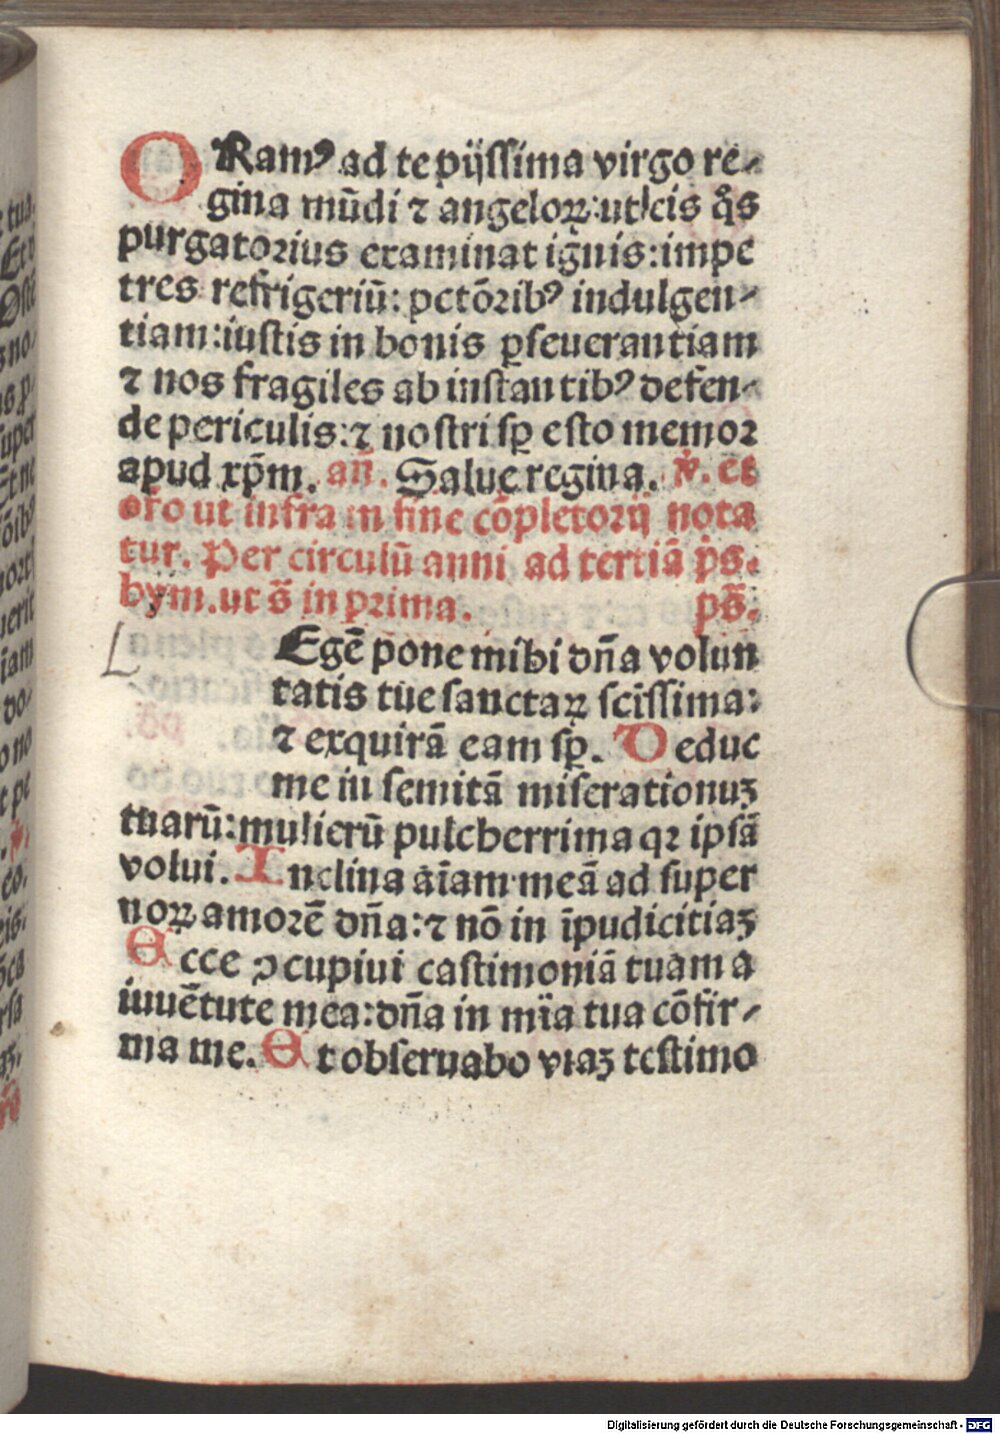 ORamꝰ ad te pijſſima virgo re-
gina mūdi ⁊ angeloꝝ: ut hcis q̊s
purgatorius examinat ignis: impe
tres refrigeriū: pctōribꝰ indulgen-
tiam: iuſtis in bonis ꝑſeuerantiam
⁊ nos fragiles ab inſtantibꝰ defen-
de periculis: ⁊ noſtri ſꝑ eſto memor
apud xp̄m. añ. Salue regina. ꝟ. et
oro ut infra in fine cōpletorij nota
tur. Per circulū anni ad tertiā p̄s.
hym. ut s̄ in prima. ps̄.
L
Egē pone mihi dn̄a volun
tatis tue ſanctaꝝ ſciſſima:
⁊ exquirā eam ſꝑ. Deduc
me in ſemitā miſerationuꝫ
tuarū: mulierū pulcherrima qꝛ ipſā
volui. Inclina aīam meā ad ſuper
noꝝ amorē dn̄a: ⁊ nō in īpudicitiaꝫ
Ecce ↄcupiui caſtimoniā tuam a
iuuētute mea: dn̄a in mīa tua cōfir-
ma me. Et obſeruabo viaꝫ teſtimo
Digitalisierung gefördert durch die Deutsche Forschungsgemeinschaft - DFG